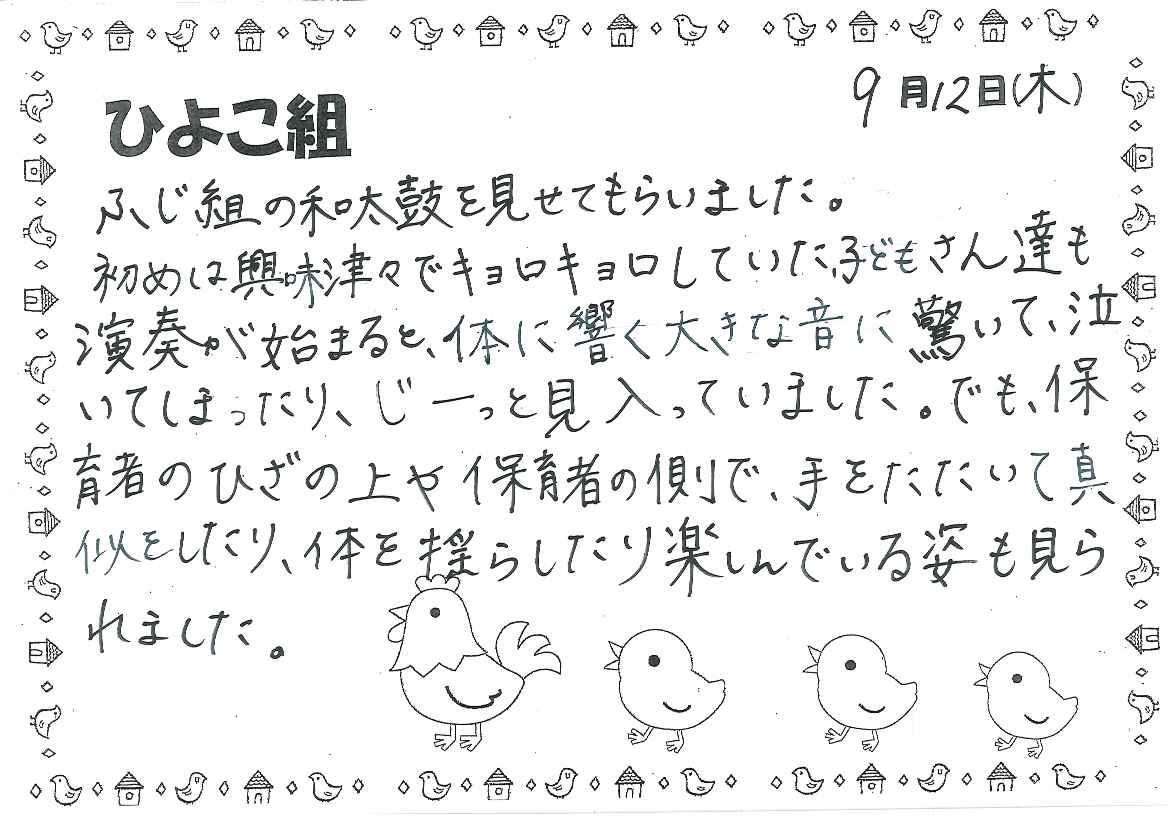 9月12日(木)
ひよこ組
ふじ組の和太鼓を見せてもらいました。
初めは興味津々でキョロキョロしていた子どもさん達も
演奏が始まると、体に響く大きな音に驚いて、泣
いてしまったり、じーっと見入っていました。でも、保
育者のひざの上や保育者の側で、手をたたいて真
似をしたり、体を揺らしたり楽しんでいる姿も見ら
れました。